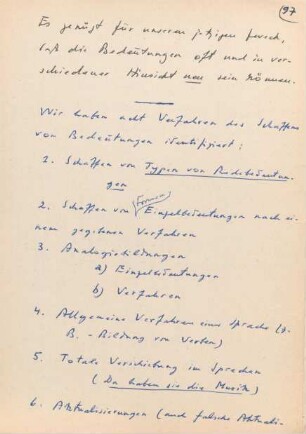 97
Es genügt für unseren jetzigen Zweck,
daß die Bedeutungen oft und in ver-
schiedener Hinsicht neu sein können.
Wir haben acht Verfahren des Schaffens
von Bedeutungen identifiziert:
1. Schaffen von Typen von Redebedeutun-
gen
2. Schaffen von (Formen) Einzelbedeutungen nach ei-
nem gegebenen Verfahren
3. Analogiebildungen
a) Einzelbedeutungen
b) Verfahren
4. Allgemeine Verfahren einer Sprache (z.
B. - Bildung von Verben)
5. Totale Verschiebung im Sprechen
(Da haben sie die Musik)
6. Aktualisierungen (auch falsche Aktuali-